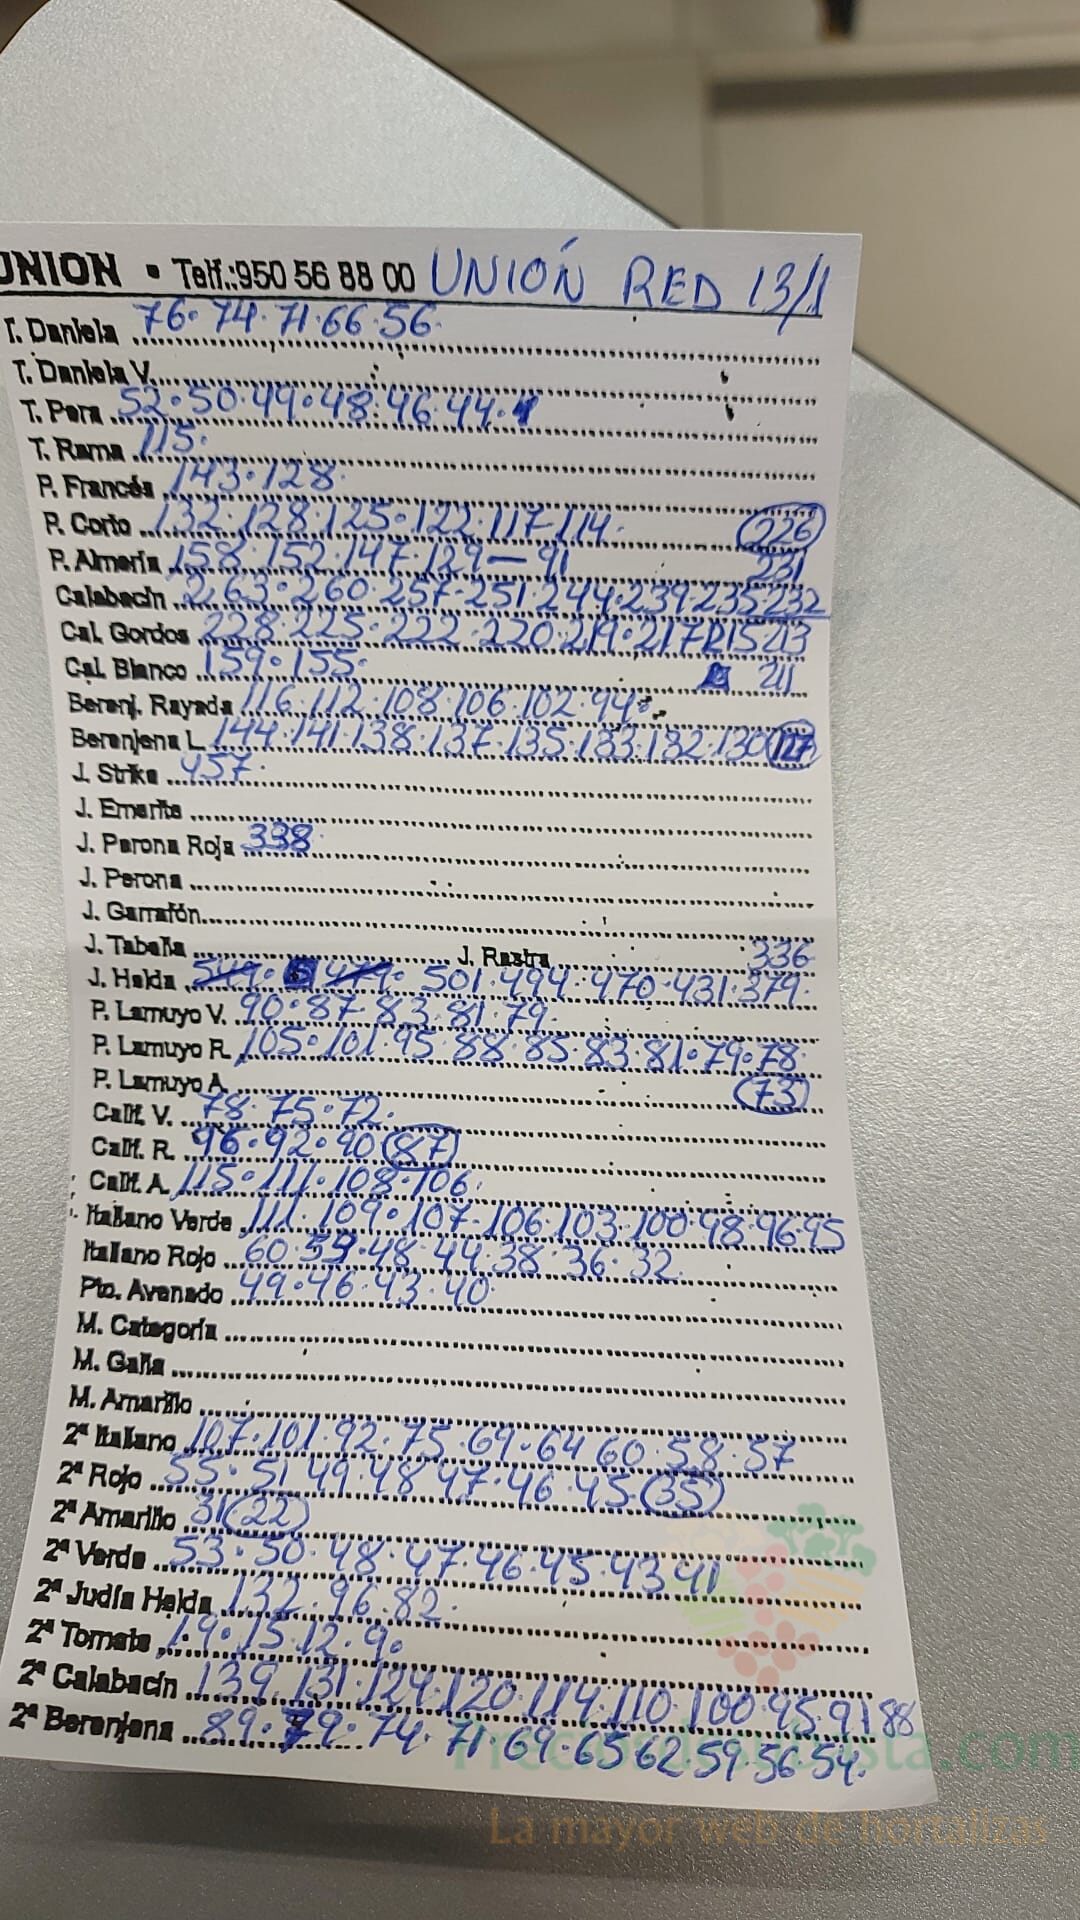 UNION • Telf.:950 56 88 00 UNIÓN RED 13/1
T. Daniela 76. 74. 71. 66. 56.
T. Daniela V.
T. Pera 52. 50. 49. 48. 46. 44.
T. Rama 115.
P. Francés 143. 128.
P. Corto 132. 128. 125. 122. 117. 114. 226
P. Almería 158. 152. 147. 129 — 91 231
Calabacín 263. 260. 257. 251. 244. 239. 235. 232
Cal. Gordos 228. 225. 222. 220. 219. 217. 215. 213
Cal. Blanco 159. 155. 211
Berenj. Rayada 116. 112. 108. 106. 102. 94.
Berenjena L. 144. 141. 138. 137. 135. 133. 132. 130 127
J. Strike 457.
J. Emerite
J. Perona Roja 338.
J. Perona
J. Garrafón
J. Tabella J. Rastra 336
J. Helda 549. 479. 501. 494. 470. 431. 379.
P. Lamuyo V. 90. 87. 83. 81. 79.
P. Lamuyo R. 105. 101. 95. 88. 85. 83. 81. 79. 78.
P. Lamuyo A. 73
Calif. V. 78. 75. 72.
Calif. R. 96. 92. 90 87
Calif. A. 115. 111. 108. 106.
Italiano Verde 111. 109. 107. 106. 103. 100. 98. 96. 95
Italiano Rojo 60. 53. 48. 44. 38. 36. 32.
Pto. Avenado 49. 46. 43. 40.
M. Categoría
M. Galia
M. Amarillo
2ª Italiano 107. 101. 92. 75. 69. 64 60. 58. 57
2ª Rojo 55. 51. 49. 48. 47. 46. 45. 35
2ª Amarillo 31 22
2ª Verde 53. 50. 48. 47. 46. 45. 43 41
2ª Judía Helda 132. 96. 82.
2ª Tomate 19. 15. 12. 9.
2ª Calabacín 139. 131. 124. 120. 114. 110. 100. 95. 91 88
2ª Berenjena 89. 79. 74. 71. 69. 65 62. 59. 56. 54.
La mayor web de hortalizas